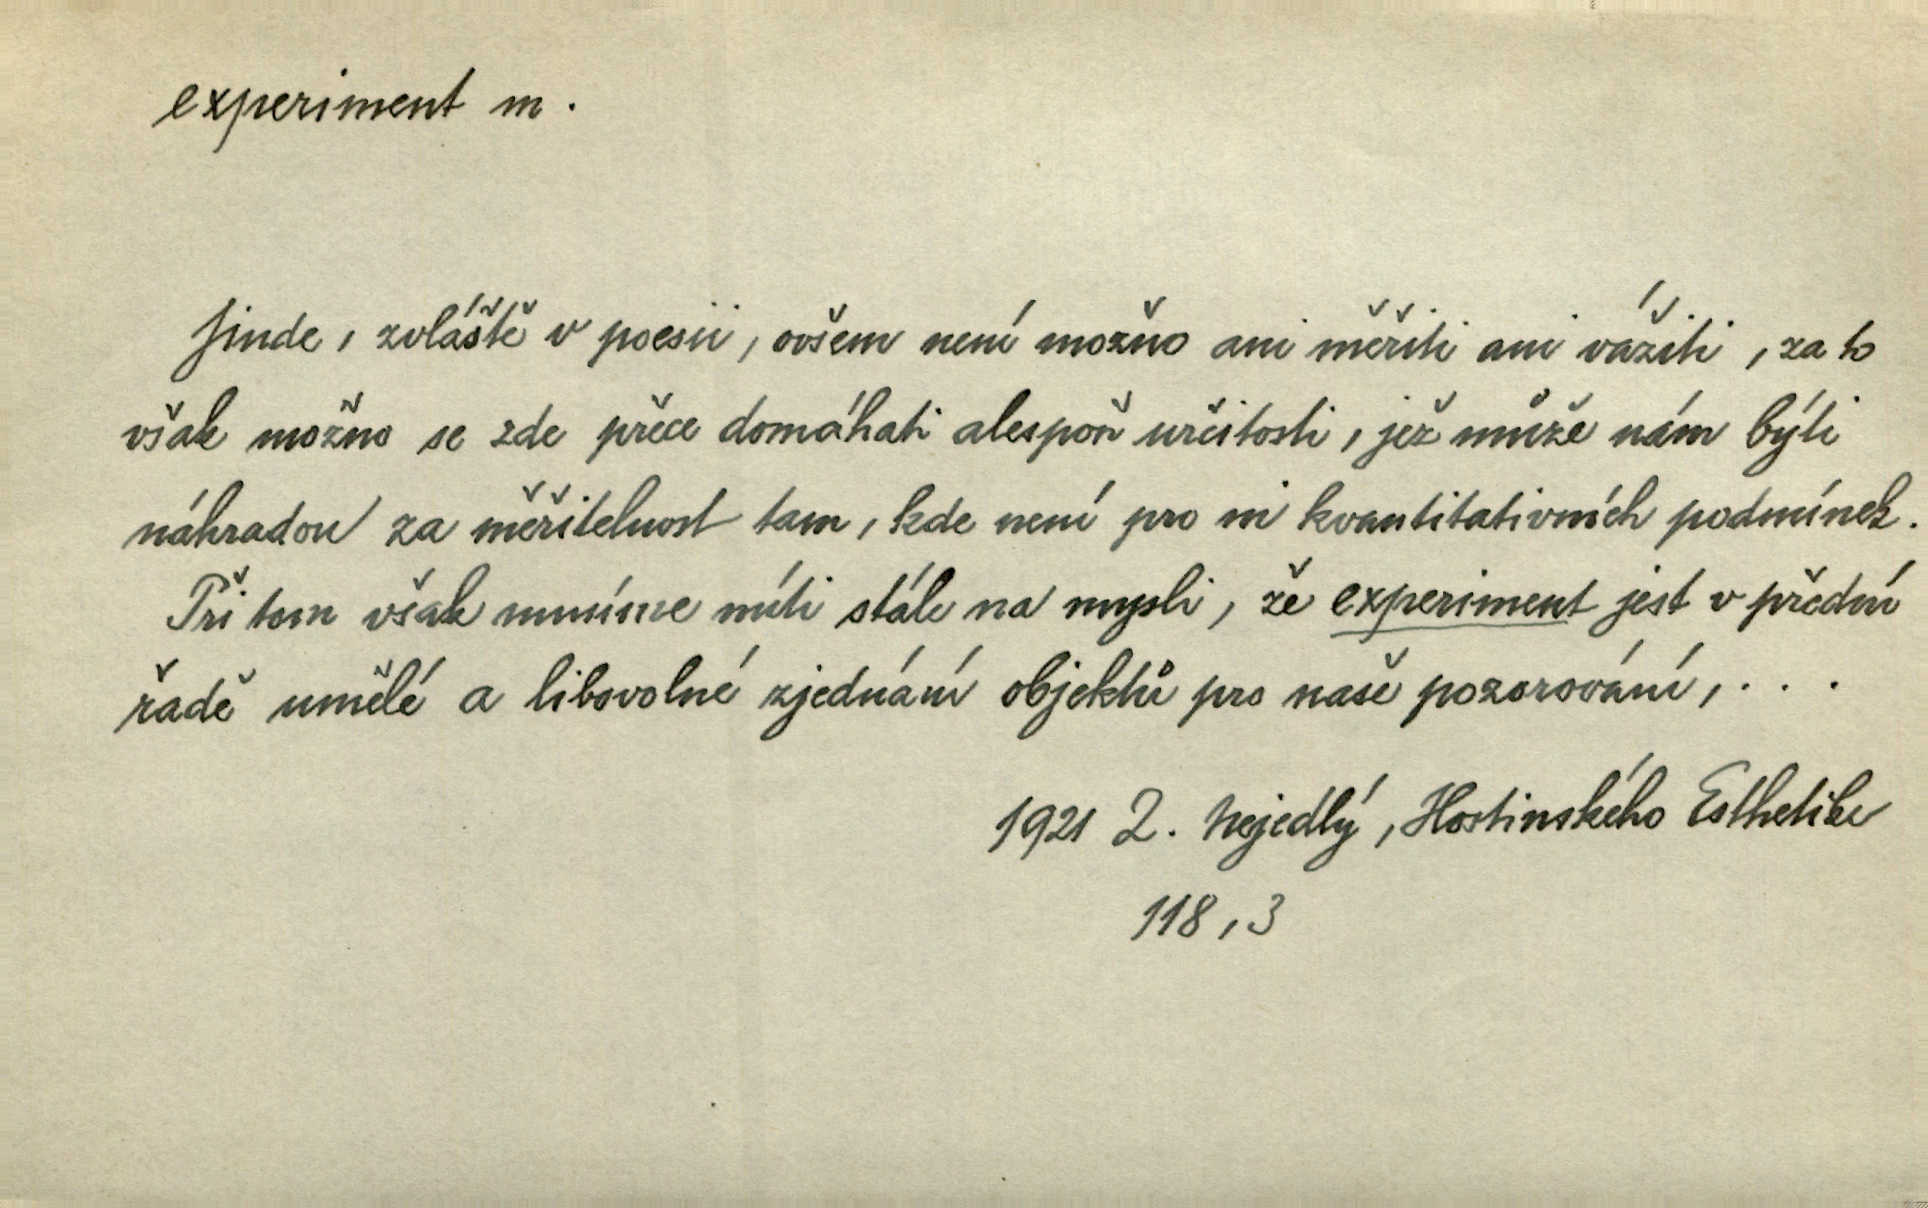 experiment m.
Jinde, zvláště v poesii, ovšem není možno ani měřiti ani vážiti, za to
však možno se zde přece domáhati alespoň určitosti, jež může nám býti
náhradou za měřitelnost tam, kde není pro ni kvantitativních podmínek.
Při tom však musíme míti stále na mysli, že experiment jest v přední
řadě umělé a libovolné zjednání objektů pro naše pozorování, . . .
1921 Z. Nejedlý, Hostinského Esthetika
118, 3